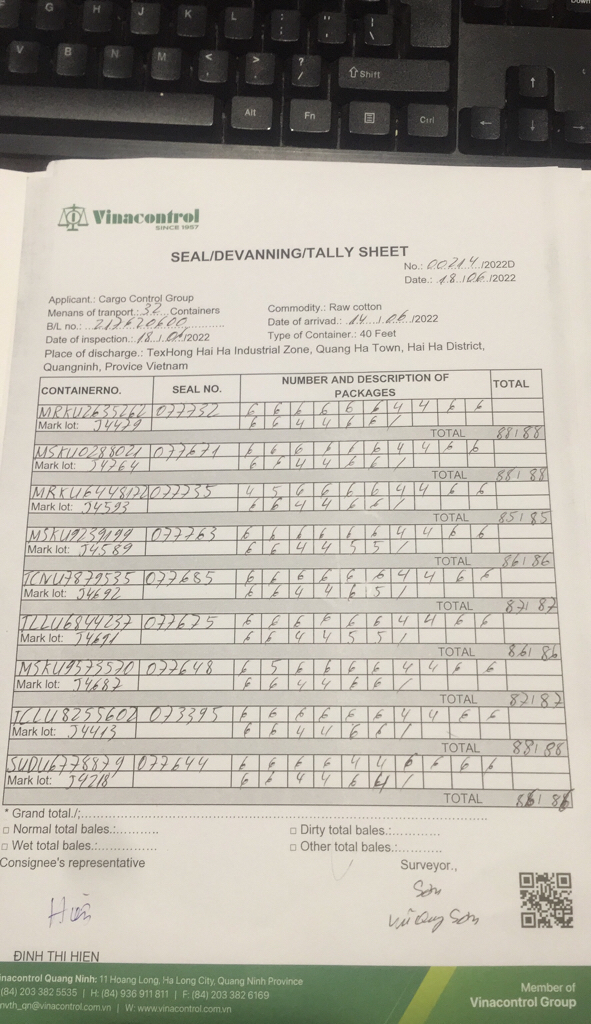 G H J K L : ; " '
V B N M < , > . ? / Shift
Alt Fn Ctrl
Vinacontrol
SINCE 1957
SEAL/DEVANNING/TALLY SHEET
No.: 00214 /2022D
Date.: 18 / 06 /2022
Applicant.: Cargo Control Group
Commodity.: Raw cotton
Menans of tranport.: 32 Containers
Date of arrivad.: 14 / 06 /2022
B/L no.: 217620600
Type of Container.: 40 Feet
Date of inspection.: 18 / 06 /2022
Place of discharge.: TexHong Hai Ha Industrial Zone, Quang Ha Town, Hai Ha District,
Quangninh, Provice Vietnam
CONTAINERNO. SEAL NO. NUMBER AND DESCRIPTION OF PACKAGES TOTAL
MRKU2635262 077732 6 6 6 6 6 6 4 4 6 6
Mark lot: J4479 6 6 4 4 6 6 /
TOTAL 88/88
MSKU0288021 077671 6 6 6 6 6 6 4 4 6 6
Mark lot: J4764 6 6 4 4 6 6 /
TOTAL 88/88
MRKU6448172 077735 4 5 6 6 6 6 4 4 6 6
Mark lot: J4593 6 6 4 4 6 6 /
TOTAL 85/85
MSKU9239199 077763 6 6 6 6 6 6 4 4 6 6
Mark lot: J4589 6 6 4 4 5 5 /
TOTAL 86/86
TCNU7879535 077685 6 6 6 6 6 6 4 4 6 6
Mark lot: J4692 6 6 4 4 6 5 /
TOTAL 87/87
TLLU6844237 077675 6 6 6 6 6 6 4 4 6 6
Mark lot: J4691 6 6 4 4 5 5 /
TOTAL 86/86
MSKU9573570 077648 6 5 6 6 6 6 4 4 6 6
Mark lot: J4687 6 6 4 4 6 6 /
TOTAL 87/87
TCLU8255602 073395 6 6 6 6 6 6 4 4 6 6
Mark lot: J4413 6 6 4 4 6 6 /
TOTAL 88/88
SUDU6778879 077644 6 6 6 6 4 4 6 6 6 6
Mark lot: J4218 6 6 4 4 6 4 /
TOTAL 86/86
* Grand total./:
□ Normal total bales.: □ Dirty total bales.:
□ Wet total bales.: □ Other total bales.:
Consignee's representative Surveyor.,
Sơn
Hiền Vương Sơn
ĐINH THI HIEN
Vinacontrol Quang Ninh: 11 Hoang Long, Ha Long City, Quang Ninh Province
(84) 203 382 5535 | H: (84) 936 911 811 | F: (84) 203 382 6169
nvth_qn@vinacontrol.com.vn | W: www.vinacontrol.com.vn
Member of
Vinacontrol Group